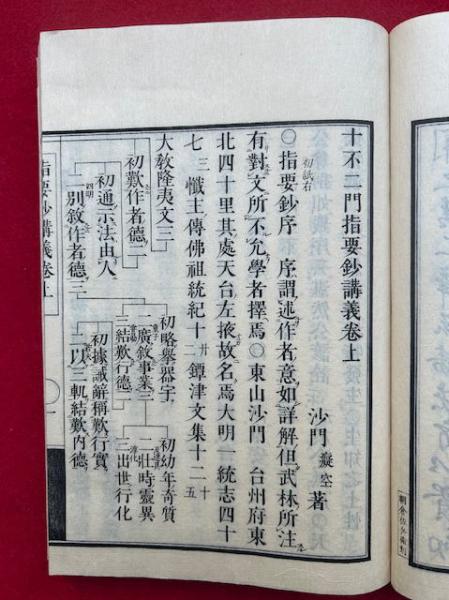 十不二門指要鈔講義卷上
沙門 癡空 著
〇指要鈔序 序謂述作者意如詳解但武林所注
有對文所不允學者擇焉〇東山沙門 台州府東
北四十里其處天台左掖故名焉大明一統志四十
七 三 懺主傳佛祖統紀十二 廿 鐔津文集十二 十
大敎隆夷文三
初歎作者德二
初通示法由人
四明
別敘作者德三
初略擧器宇
二廣敘事業三
三結歎行德二
初幼年奇質
二壯時靈異
三出世行化
初據誡辭稱歎行實
二以三軌結歎內德
指要鈔講義卷上